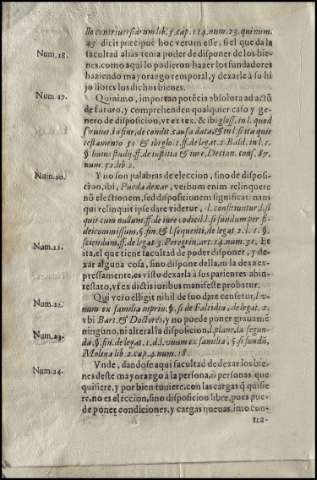 llo controuersiarum lib. 3. cap. 114. num. 23. qui num.
25 dicit præcipuè hoc verum esse, si el que da la
Num. 18. facultad alias tenia poder de disponer de los bie-
nes, como aqui lo pudieron hazer los fundadores
haziendo mayorazgo temporal, y dexarle à su hi
jo libres los dichos bienes.
Num. 19. Quinimo, importan potẽcia absoluta ad actũ
de futuro, y comprehenden qualquier caso, y ge-
nero de disposicion, vt ex tex. & ibi gloss. in l. quod
seruius in fine, de condict. causa data, & in l. si ita quis
testamento 51 & ibi glo. 1. ff. de legat. 2. Bald. in l. 1.
§ huius studij, ff. de iustitia & iure, Decian. cons. 89.
num. 52. lib. 2.
Num. 20. Y no son palabras de eleccion, sino de disposi-
cion, ibi, Pueda dexar, verbum enim relinquere
nõ electionem, sed dispositionem significat: nam
qui relinquit ipse dare videtur, l. conficiuntur, l. si
quis cum nullum, ff. de iure codicil. l. si fundum per fi-
deicommissum, § fin. & l. sequenti, de legat. 1. l. 1. §.
sciendum, ff. de legat 3. Peregrin. art. 14. num. 31. Et
Num. 21. ita, el que tiene facultad de poder disponer, y de-
xar alguna cosa, sino dispone della, ni la dexa ex-
pressamente, es visto dexarla à sus parientes abin-
testato, vt ex dictis iuribus manifeste probatur.
Num. 22. Qui verò elligit nihil de suo dare censetur, l. v-
num ex familia in prin. §. si de Falcidia, de legat. 2.
vbi Bart. & Doctores, y no puede poner grauamẽ
Num. 23. ninguno, ni alterar la disposicion, l. plane, la segun-
da, § fin. de legat. 1. d. l. vnum ex familia, § si fundũ,
Molina lib. 2. cap. 4. num. 18.
Num. 24. Vnde, dandose aqui facultad de dexar los bie-
nes deste mayorazgo à la persona, ò personas que
quisiere, y por bien tuuiere, con las cargas q̃ quisie
re, no es eleccion, sino disposicion libre, pues pue-
de poner condiciones, y cargas nueuas, imo con-
tra-